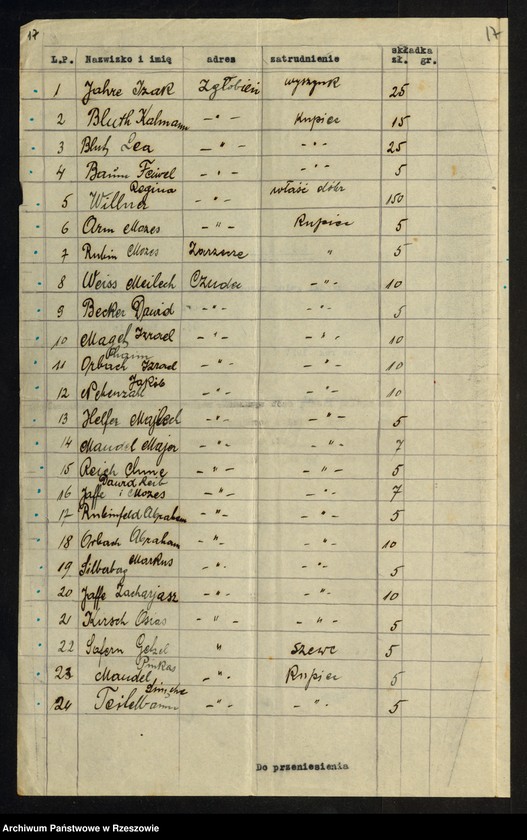 17 17
L.P. Nazwizko i imię adres zatrudnienie składka zł. gr.
1 Jahre Izak Zgłobień wyszynk 25
2 Bluth Kalmann -"- Kupiec 15
3 Bluth Lea -"- -"- 25
4 Baum Feiwel -"- -"- 5
5 Willner Regina -"- właśc dóbr 150
6 Arm Mozes -"- Kupiec 5
7 Rubin Mozes " 5
8 Weiss Meilech Czudec -"- 10
9 Becker Dawid -"- -"- 5
10 Magel Izrael -"- -"- 10
11 Orbach Chaim Izrael -"- -"- 10
12 Nebenzahl Jakób -"- -"- 10
13 Helfer Majlech -"- -"- 5
14 Mandel Major -"- -"- 7
15 Reich Chune -"- -"- 5
16 Jaffe Dawid Leib i Mozes -"- -"- 7
17 Rubinfeld Abraham -"- -"- 5
18 Orbach Abraham -"- -"- 10
19 Markus -"- -"- 5
20 Jaffe Zacharjasz -"- -"- 10
21 Kirsch Osias -"- -"- 5
22 Safern Getzel " szewc 5
23 Mandel Pinkas -"- Kupiec 5
24 Teitelbaum -"- -"- 5
Do przeniesienia
Archiwum Państwowe w Rzeszowie